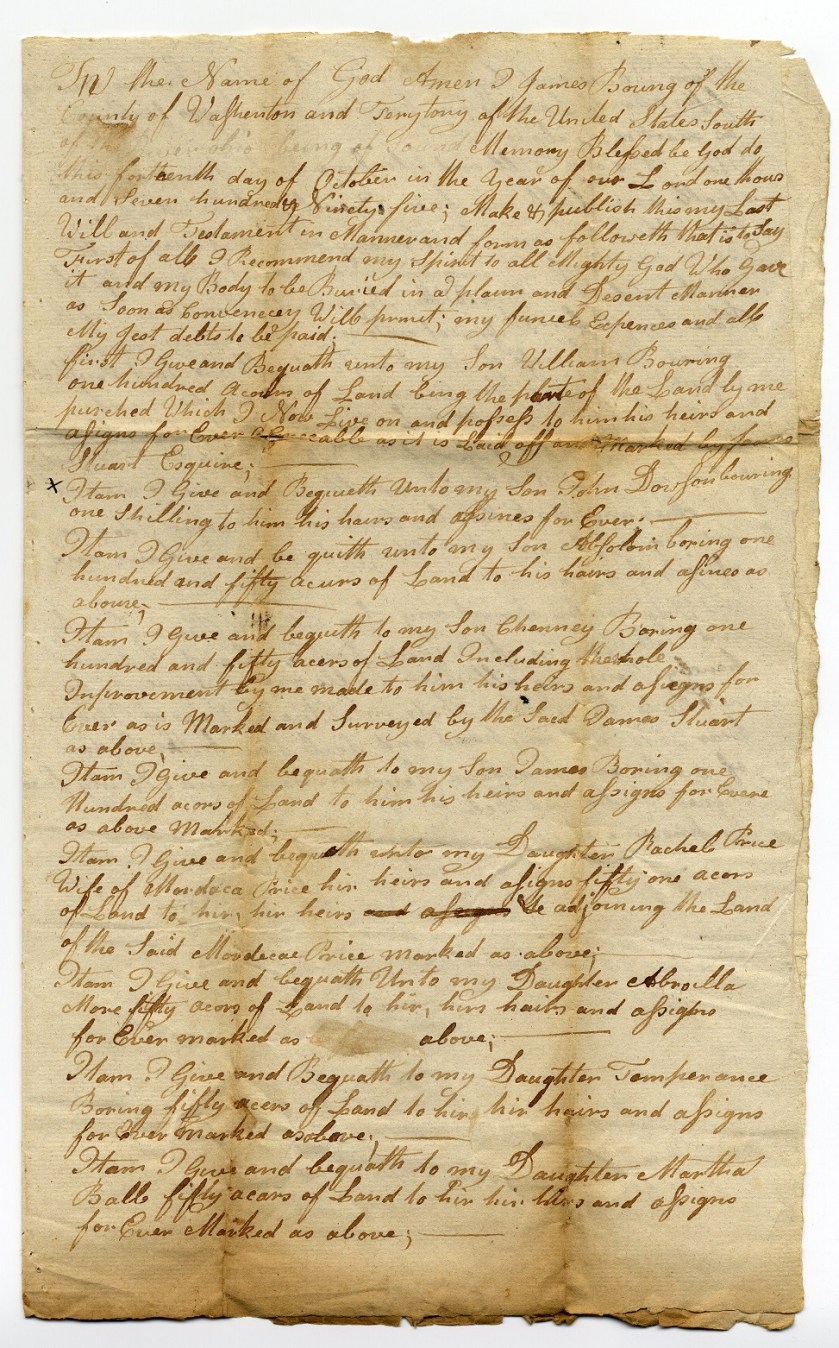 In the Name of God Amen I James Boring of the
County of Washenton and Terrytory of the United States South
of the being of Sound Memory Blessed be God do
this forteenth day of October in the Year of our Lord one thous
and Seven hundred & Ninety five; Make & publish this my Last
Will and Testament in Manner and form as followeth that is to Say
First of all I Recommend my Spirit to all Mighty God Who Gave
it and my Body to be Buried in a plain and Desent Manner
as Soon as Convencey Will prmit; my funeel Expences and all
My Jest debts to be paid;
first I Give and Bequath unto my Son William Bouring
one hundred Acours of Land being the parte of the Land by me
purched Which I Now Live on and possess to him his heirs and
asigns for Ever Agreeable as it is Laid off and Marked by James
Stuart Esquire;
x Itam I Give and Bequeth Unto my Son John Dowson bouring
one Shilling to him his hairs and assines for Ever.
Itam I Give and be quith unto my Son Absolom boring one
hundred and fifty acurs of Land to his hairs and asines as
aboure;
Itam I Give and bequith to my Son Chenney Boring one
hundred and fifty acers of Land Including the whole
Inprovement by me made to him his heirs and assigns for
Ever as is Marked and Surveyed by the Said James Stuart
as above;
Itam I Give and bequath to my Son James Boring one
Hundred acors of Land to him his heirs and assigns for Evere
as above Marked;
Itam I Give and bequeth unto my Daughter Rachel Price
Wife of Mordaca Price hir heirs and asigns fifty one acors
of Land to hir, hir heirs and asigns adjoining the Land
of the Said Mordecae Price marked as above;
Itam I Give and bequath Unto my Daughter Abroilla
More fifty acors of Land to hir, hirs hairs and assigns
for Ever marked as above;
Itam I Give and Bequath to my Daughter Temperance
Boring fifty acers of Land to hir, hir hairs and assigns
for Ever Marked as above;
Itam I Give and bequath to my Daughter Martha
Ball fifty acars of Land to hir hir. hirs and assigns
for Ever Marked as above;